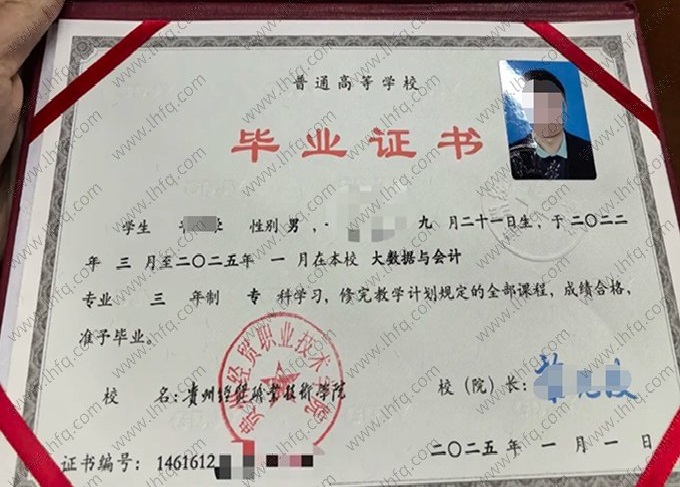 普通高等学校
毕业证书
学生 性别 男, 九 月二十一日生, 于二〇二二
年 三 月至二〇二五年 一 月在本校 大数据与会计
专业 三 年制 专 科学习, 修完教学计划规定的全部课程, 成绩合格,
准予毕业。
贵州经贸职业技术学院
校 名: 贵州经贸职业技术学院
校（院）长:
二〇二五 年 一 月 一 日
证书编号: 1461612
www.lhfq.com